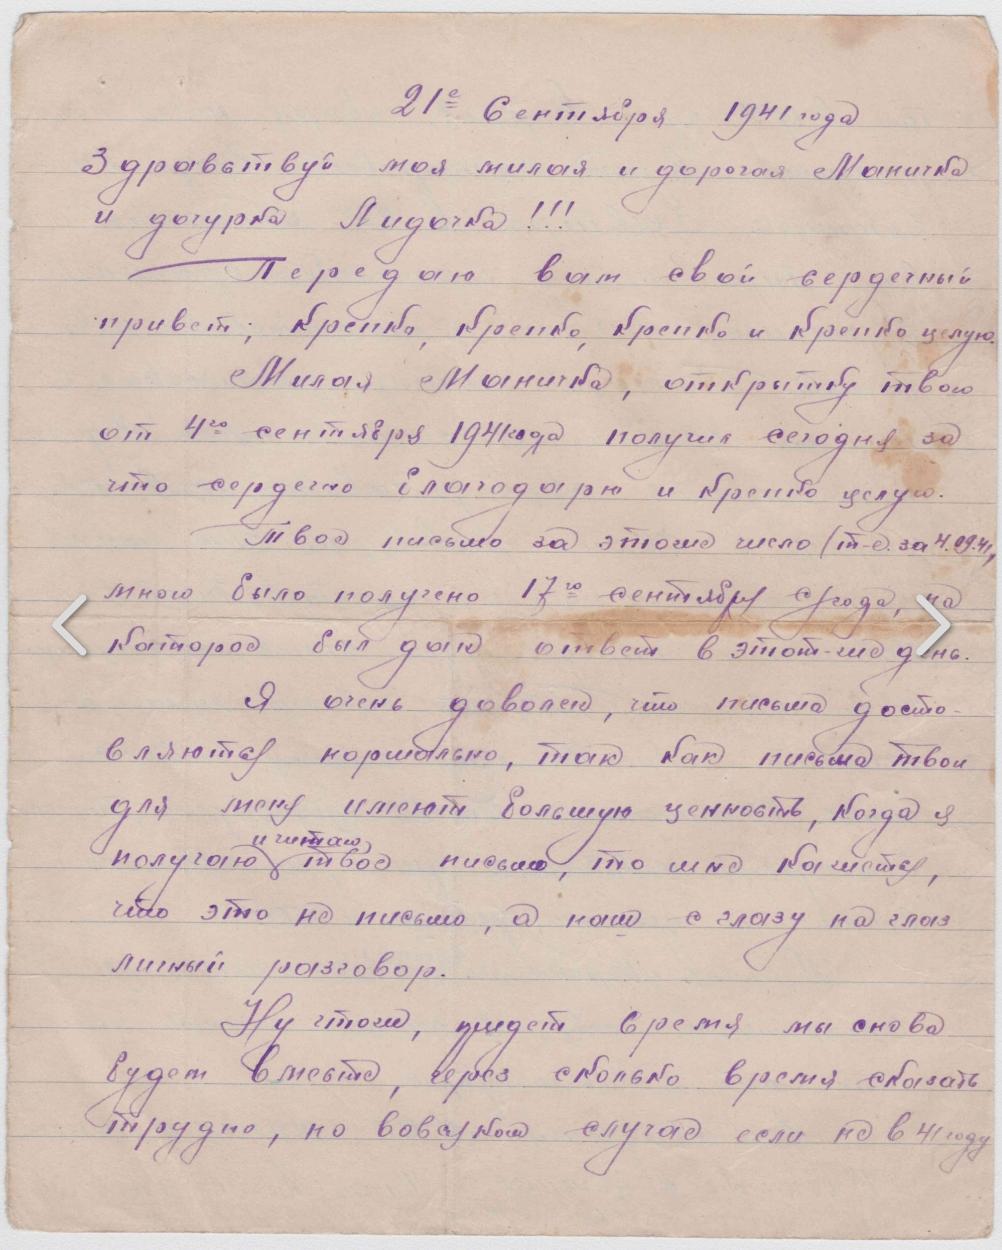 21е Сентября 1941 года
Здравствуй моя милая и дорогая Маничка
и дочурка Лидочка!!!
Передаю вам свой сердечный
привет; крепко, крепко, крепко и крепко целую.
Милая Маничка, открытку твою
от 4го сентября 1941 года получил сегодня за
что сердечно благодарю и крепко целую.
Твое письмо за этоже число (т-е. за 4.09.41,
мною было получено 17го сентября с/года, на
каторое был дан ответ в этот-же день.
Я очень доволен, что письма доста-
вляются нормально, так как письма твои
для меня имеют большую ценность, когда я
и читаю
получаю твое письмо, то мне кажется,
что это не письмо, а наш с глазу на глаз
личный разговор.
Ну чтоже, придет время мы снова
будем вместе, через сколько время сказать
трудно, но вовсяком случае если не в 41 году